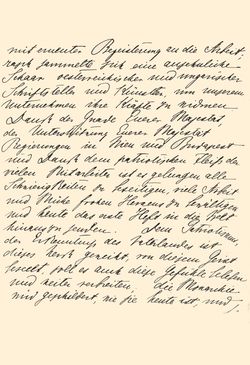 mit erneuter Begeisterung an die Arbeit,
rasch sammelte sich eine ansehnliche
Schaar oesterreichischer und ungarischer
Schriftsteller und Künstler, um unserem
Unternehmen ihre Kräfte zu widmen
Dank der Gnade Euerer Majestät,
der Unterstützung Euerer Majestät
Regierungen in Wien und Budapest
und Dank dem patriotischen Fleiß der
vielen Mitarbeiter ist es gelungen alle
Schwierigkeiten zu beseitigen, viele Arbeit
und Mühe frohen Herzens zu bewältigen
und heute das erste Heft in die Welt
hinaus zu senden. Dem Patriotismus,
der Erkenntniß des Vaterlandes ist
dieses Werk geweiht, von diesem Geist
beseelt, soll es auch diese Gefühle beleben
und weiter verbreiten. die Monarchie
wird geschildert, wie sie heute ist, und